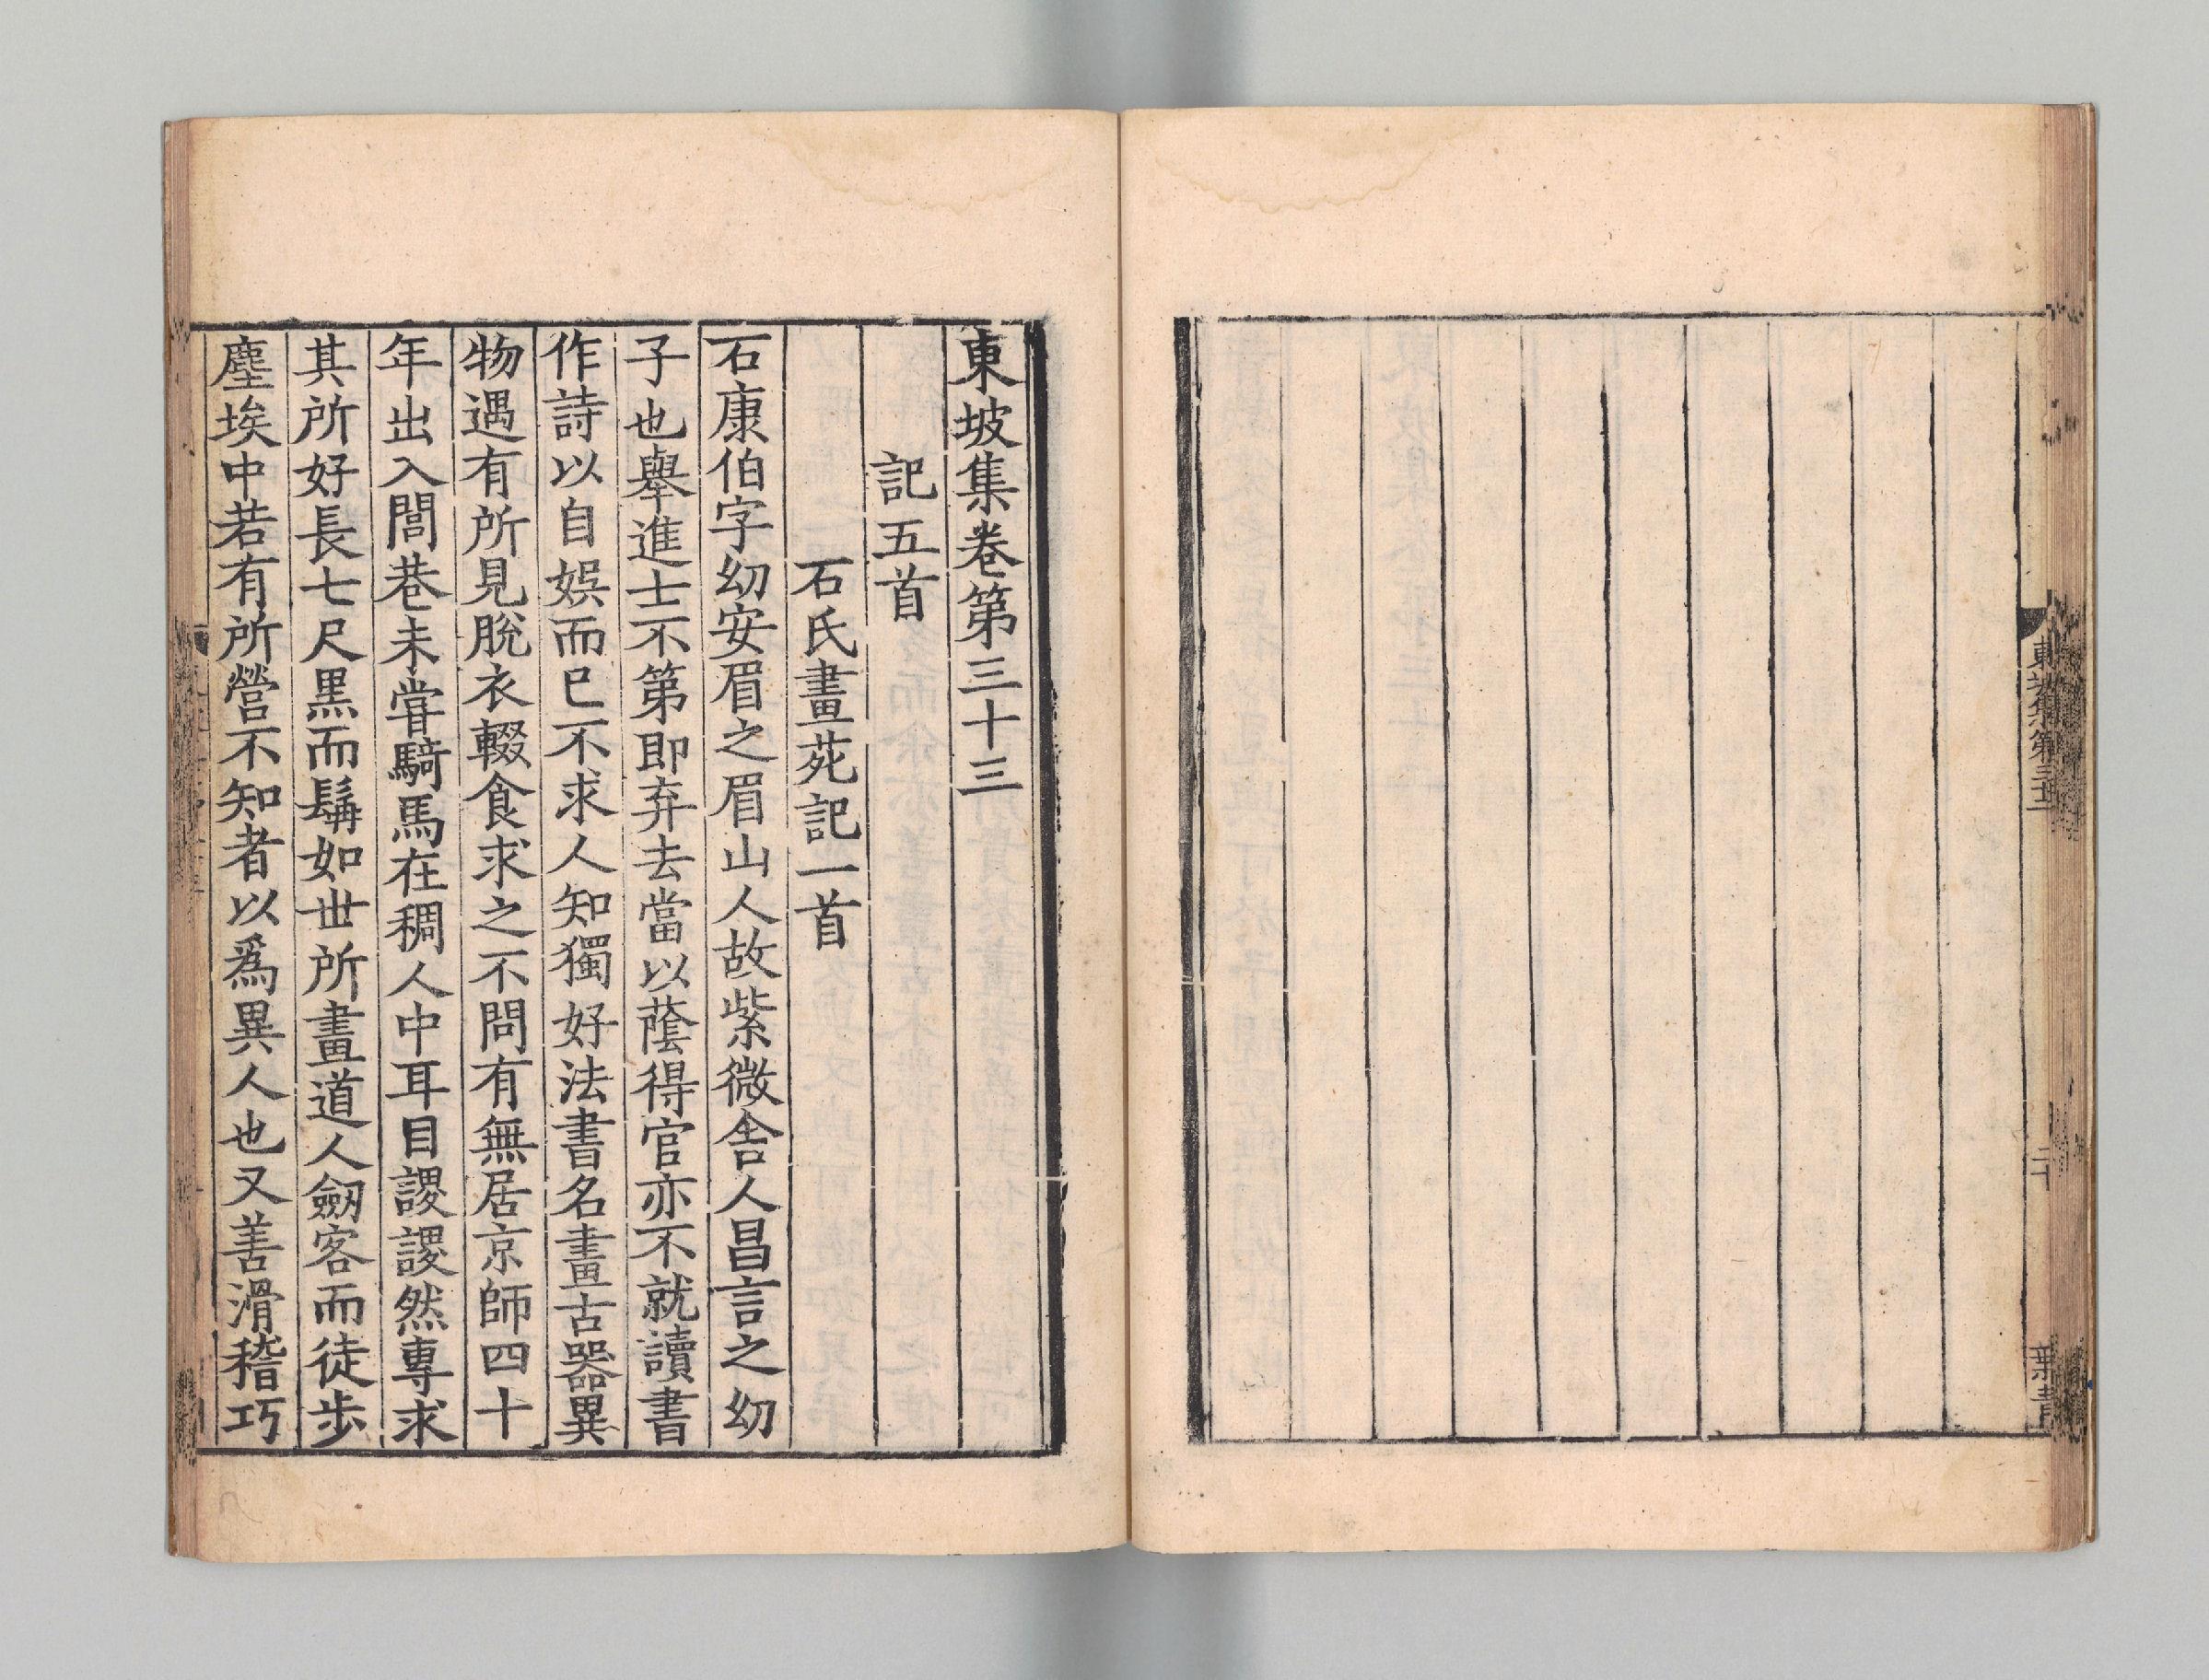 東坡集卷第三十三
記五首
石氏畫苑記一首
石康伯字幼安眉之眉山人故紫微舍人昌言之幼
子也舉進士不第即弃去當以蔭得官亦不就讀書
作詩以自娛而已不求人知獨好法書名畫古器異
物遇有所見脫衣輟食求之不問有無居京師四十
年出入閭巷未甞騎馬在稠人中耳目謖謖然專求
其所好長七尺黑而髯如世所畫道人劒客而徒步
塵埃中若有所營不知者以爲異人也又善滑稽巧